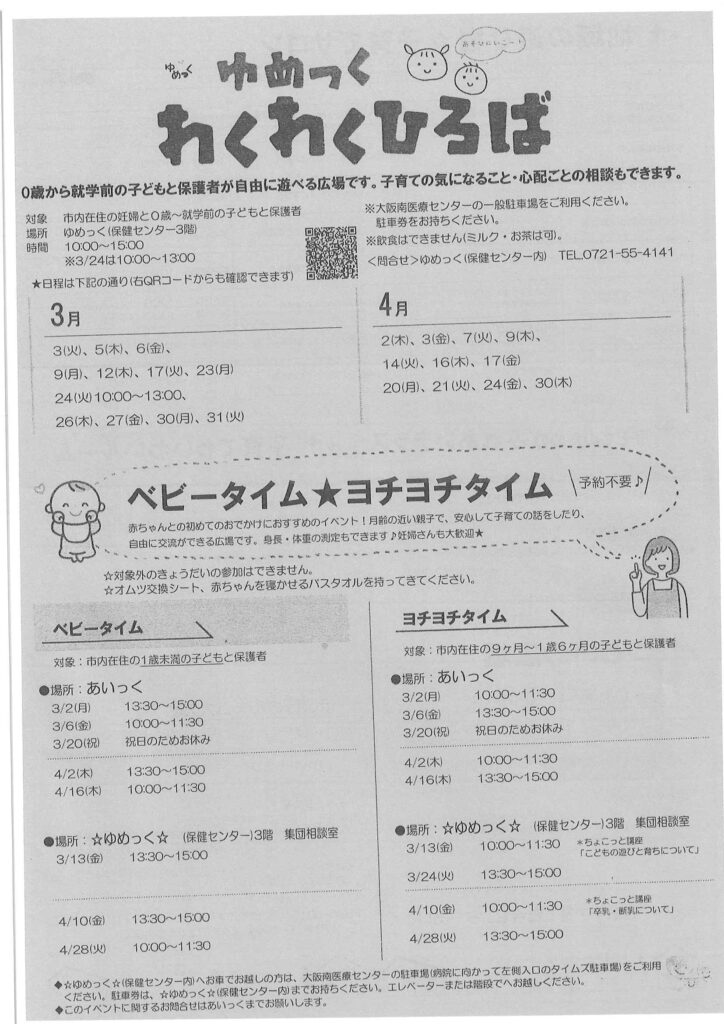 あそびにいこー！
ゆめっく
ゆめっく
わくわくひろば
0歳から就学前の子どもと保護者が自由に遊べる広場です。子育ての気になること・心配ごとの相談もできます。
対象　市内在住の妊婦と０歳～就学前の子どもと保護者
場所　ゆめっく(保健センター3階)
時間　10:00～15:00
※3/24は10:00～13:00
★日程は下記の通り(右QRコードからも確認できます)
※大阪南医療センターの一般駐車場をご利用ください。
駐車券をお持ちください。
※飲食はできません(ミルク・お茶は可)。
＜問合せ＞ゆめっく(保健センター内)　TEL.0721-55-4141
3月
3(火)、5(木)、6(金)、
9(月)、12(木)、17(火)、23(月)
24(火)10:00～13:00、
26(木)、27(金)、30(月)、31(火)
4月
2(木)、3(金)、7(火)、9(木)、
14(火)、16(木)、17(金)
20(月)、21(火)、24(金)、30(木)
ベビータイム★ヨチヨチタイム
予約不要♪
赤ちゃんとの初めてのおでかけにおすすめのイベント！月齢の近い親子で、安心して子育ての話をしたり、
自由に交流ができる広場です。身長・体重の測定もできます♪妊婦さんも大歓迎★
☆対象外のきょうだいの参加はできません。
☆オムツ交換シート、赤ちゃんを寝かせるバスタオルを持ってきてください。
ベビータイム
対象：市内在住の1歳未満の子どもと保護者
●場所：あいっく
3/2(月)　13:30～15:00
3/6(金)　10:00～11:30
3/20(祝)　祝日のためお休み
4/2(木)　13:30～15:00
4/16(木)　10:00～11:30
●場所：☆ゆめっく☆　(保健センター)3階　集団相談室
3/13(金)　13:30～15:00
4/10(金)　13:30～15:00
4/28(火)　10:00～11:30
ヨチヨチタイム
対象：市内在住の９ヶ月～１歳６ヶ月の子どもと保護者
●場所：あいっく
3/2(月)　10:00～11:30
3/6(金)　13:30～15:00
3/20(祝)　祝日のためお休み
4/2(木)　10:00～11:30
4/16(木)　13:30～15:00
●場所：☆ゆめっく☆　(保健センター)3階　集団相談室
3/13(金)　10:00～11:30　＊ちょこっと講座
「こどもの遊びと育ちについて」
3/24(火)　13:30～15:00
4/10(金)　10:00～11:30　＊ちょこっと講座
「卒乳・断乳について」
4/28(火)　13:30～15:00
◆☆ゆめっく☆(保健センター内)へお車でお越しの方は、大阪南医療センターの駐車場(病院に向かって左側入口のタイムズ駐車場)をご利用
ください。駐車券は、☆ゆめっく☆(保健センター内)までお持ちください。エレベーターまたは階段でへお越しください。
◆このイベントに関するお問合せはあいっくまでお願いします。